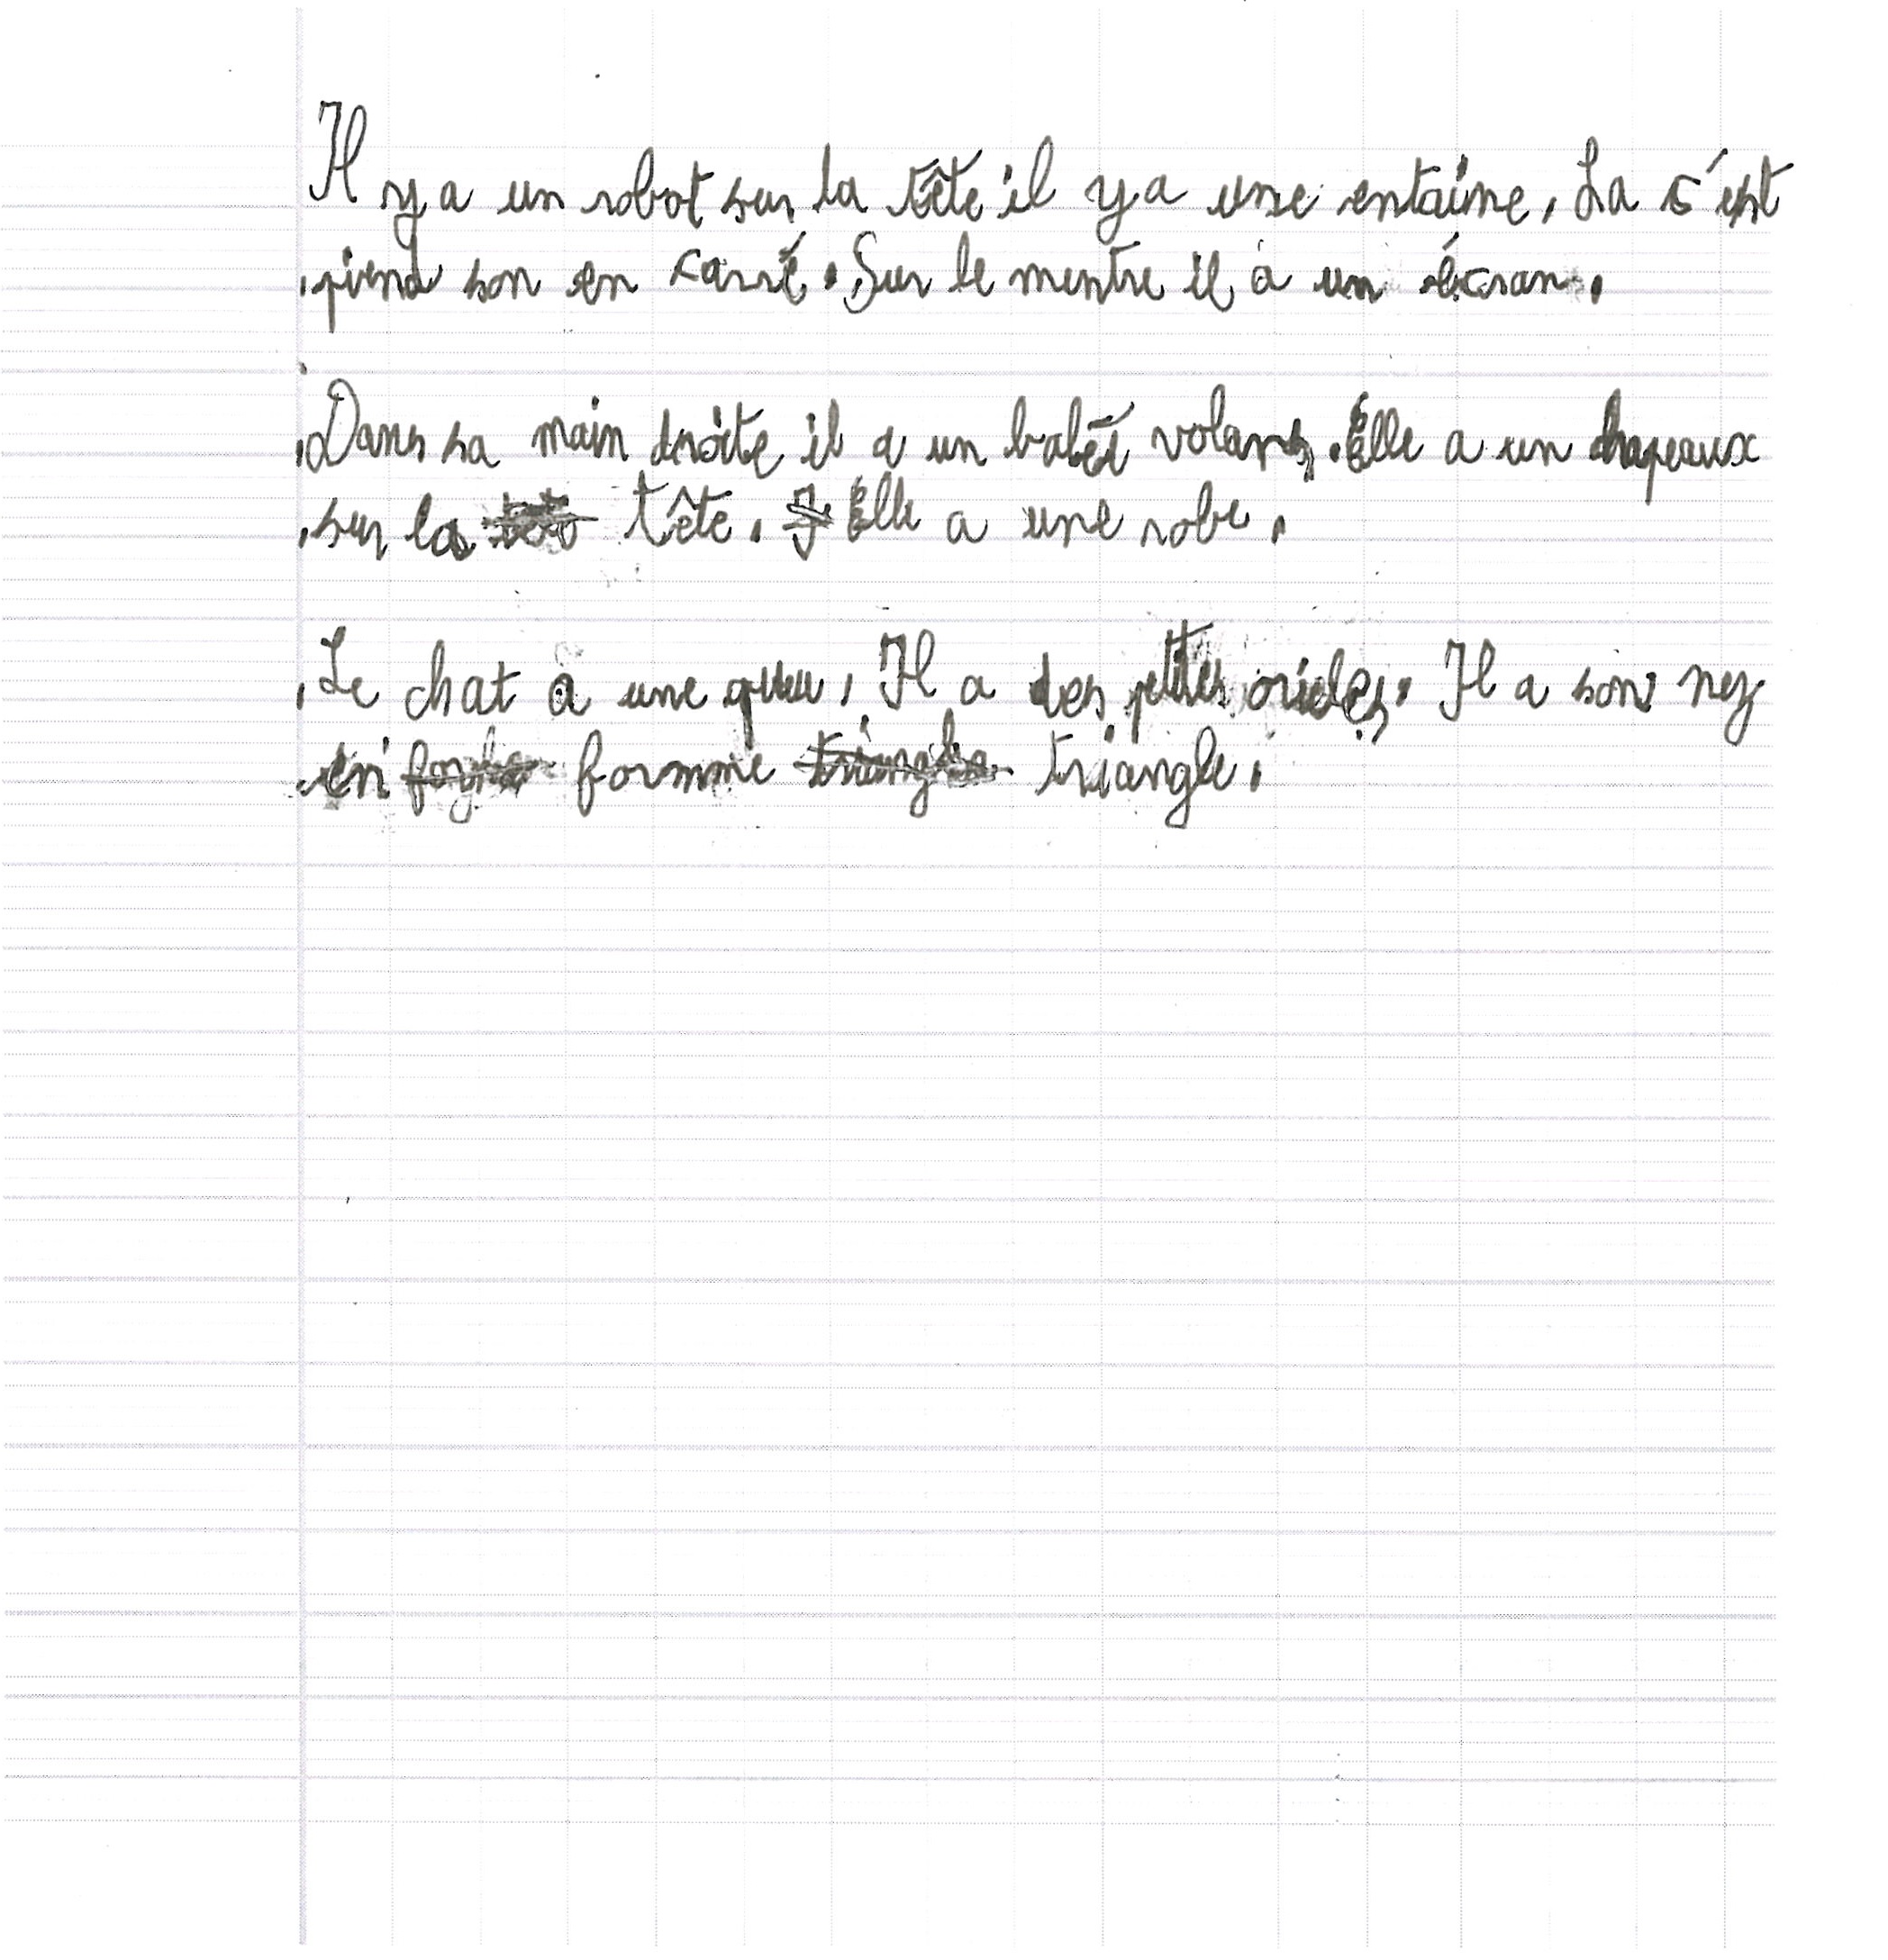 Il y a un robot sur la tête il y a une entaine. La s'est
piend son en carré. Sur le mentre il a un écran.
Dans sa main droite il a un baléi volant. Elle a un chapeaux
sur la tête. Elle a une robe.
Le chat a une queu. Il a des petites orieles. Il a son nez
en formme triangle.